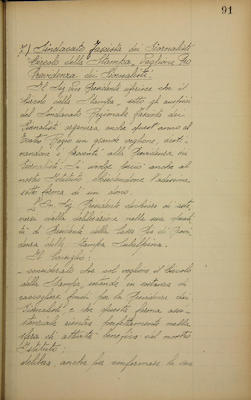 91
7) Sindacato Fascista dei Giornalisti
Circolo della Stampa, Veglione Pro
Previdenza dei Giornalisti.
Il Sig. Presidente riferisce che il
Circolo della Stampa, sotto gli auspici
del Sindacato Regionale Fascista dei
Giornalisti organizza, anche quest'anno al
Teatro Regio un grande veglione, desti-
nandone i proventi alla Previdenza dei
Giornalisti. Si rivolge perciò anche al
nostro Istituto
sotto forma di un dono.
Il Sig. Presidente dichiara di aste-
nersi dalla deliberazione nella sua quali-
tà di Presidente della Cassa Pia di Previ-
denza della Stampa Subalpina.
Il Consiglio:
- considerato che col veglione il Circolo
della Stampa intende in sostanza di
raccogliere fondi per la Previdenza dei
Giornalisti e che questa forma assi-
stenziale rientra perfettamente nella
sfera di attività benefica del nostro
Istituto;
delibera, anche per conformare la sua